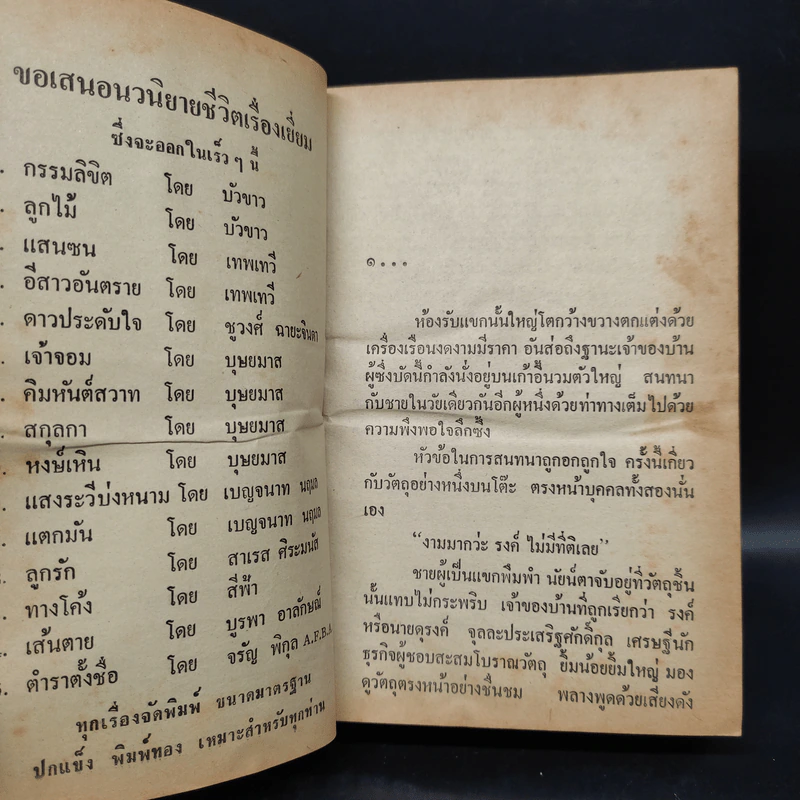 ขอเสนอนวนิยายชีวิตเรื่องเยี่ยม
ซึ่งจะออกในเร็ว ๆ นี้
กรรมลิขิต โดย บัวขาว
ลูกไม้ โดย บัวขาว
แสนซน โดย เทพเทวี
อีสาวอันตราย โดย เทพเทวี
ดาวประดับใจ โดย ชูวงศ์ ฉายะจินดา
เจ้าจอม โดย บุษยมาส
คิมหันต์สวาท โดย บุษยมาส
สกุลกา โดย บุษยมาส
หงษ์เหิน โดย บุษยมาส
แสงระวีบ่งหนาม โดย เบญจนาท นฤมล
แตกมัน โดย เบญจนาท นฤมล
ลูกรัก โดย สาเรส ศิระมนัส
ทางโค้ง โดย สีฟ้า
เส้นตาย โดย บูรพา อาลักษณ์
ตำราตั้งชื่อ โดย จรัญ พิกุล A.F.B.A.
ทุกเรื่องจัดพิมพ์ ขนาดมาตรฐาน
ปกแข็ง พิมพ์ทอง เหมาะสำหรับทุกท่าน
๑...
ห้องรับแขกนั้นใหญ่โตกว้างขวางตกแต่งด้วย
เครื่องเรือนงดงามมีราคา อันส่อถึงฐานะเจ้าของบ้าน
ผู้ซึ่งบัดนี้กำลังนั่งอยู่บนเก้าอี้นวมตัวใหญ่ สนทนา
กับชายในวัยเดียวกันอีกผู้หนึ่งด้วยท่าทางเต็มไปด้วย
ความพึงพอใจลึกซึ้ง
หัวข้อในการสนทนาถูกอกถูกใจ ครั้งนี้เกี่ยว
กับวัตถุอย่างหนึ่งบนโต๊ะ ตรงหน้าบุคคลทั้งสองนั่น
เอง
“งามมากว่ะ รงค์ ไม่มีที่ติเลย”
ชายผู้เป็นแขกพึมพำ นัยน์ตาจับอยู่ที่วัตถุชิ้น
นั้นแทบไม่กระพริบ เจ้าของบ้านที่ถูกเรียกว่า รงค์
หรือนายดุรงค์ จุลละประเสริฐศักดิ์กุล เศรษฐีนัก
ธุรกิจผู้ชอบสะสมโบราณวัตถุ ยิ้มน้อยยิ้มใหญ่ มอง
ดูวัตถุตรงหน้าอย่างชื่นชม พลางพูดด้วยเสียงดัง